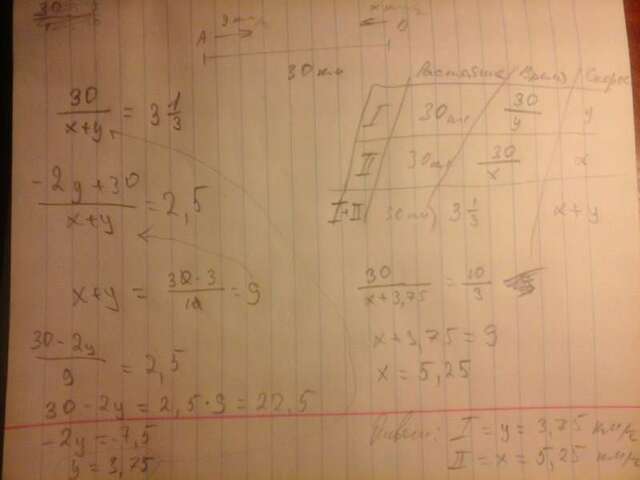 A
30 км
30/(x+y) = 3 1/3
Расстояние Время
I 30 км 30/y y
II 30 км 30/x x
I+II 30 км 3 1/3 x+y
(-2y+30)/(x+y) = 2,5
x+y = (30·3)/10 = 9
(30-2y)/9 = 2,5
30-2y = 2,5·9 = 22,5
-2y = -7,5
y = 3,75
30/(x+3,75) = 10/3
x+3,75 = 9
x = 5,25
Ответ: I = y = 3,75 км/ч
II = x = 5,25 км/ч